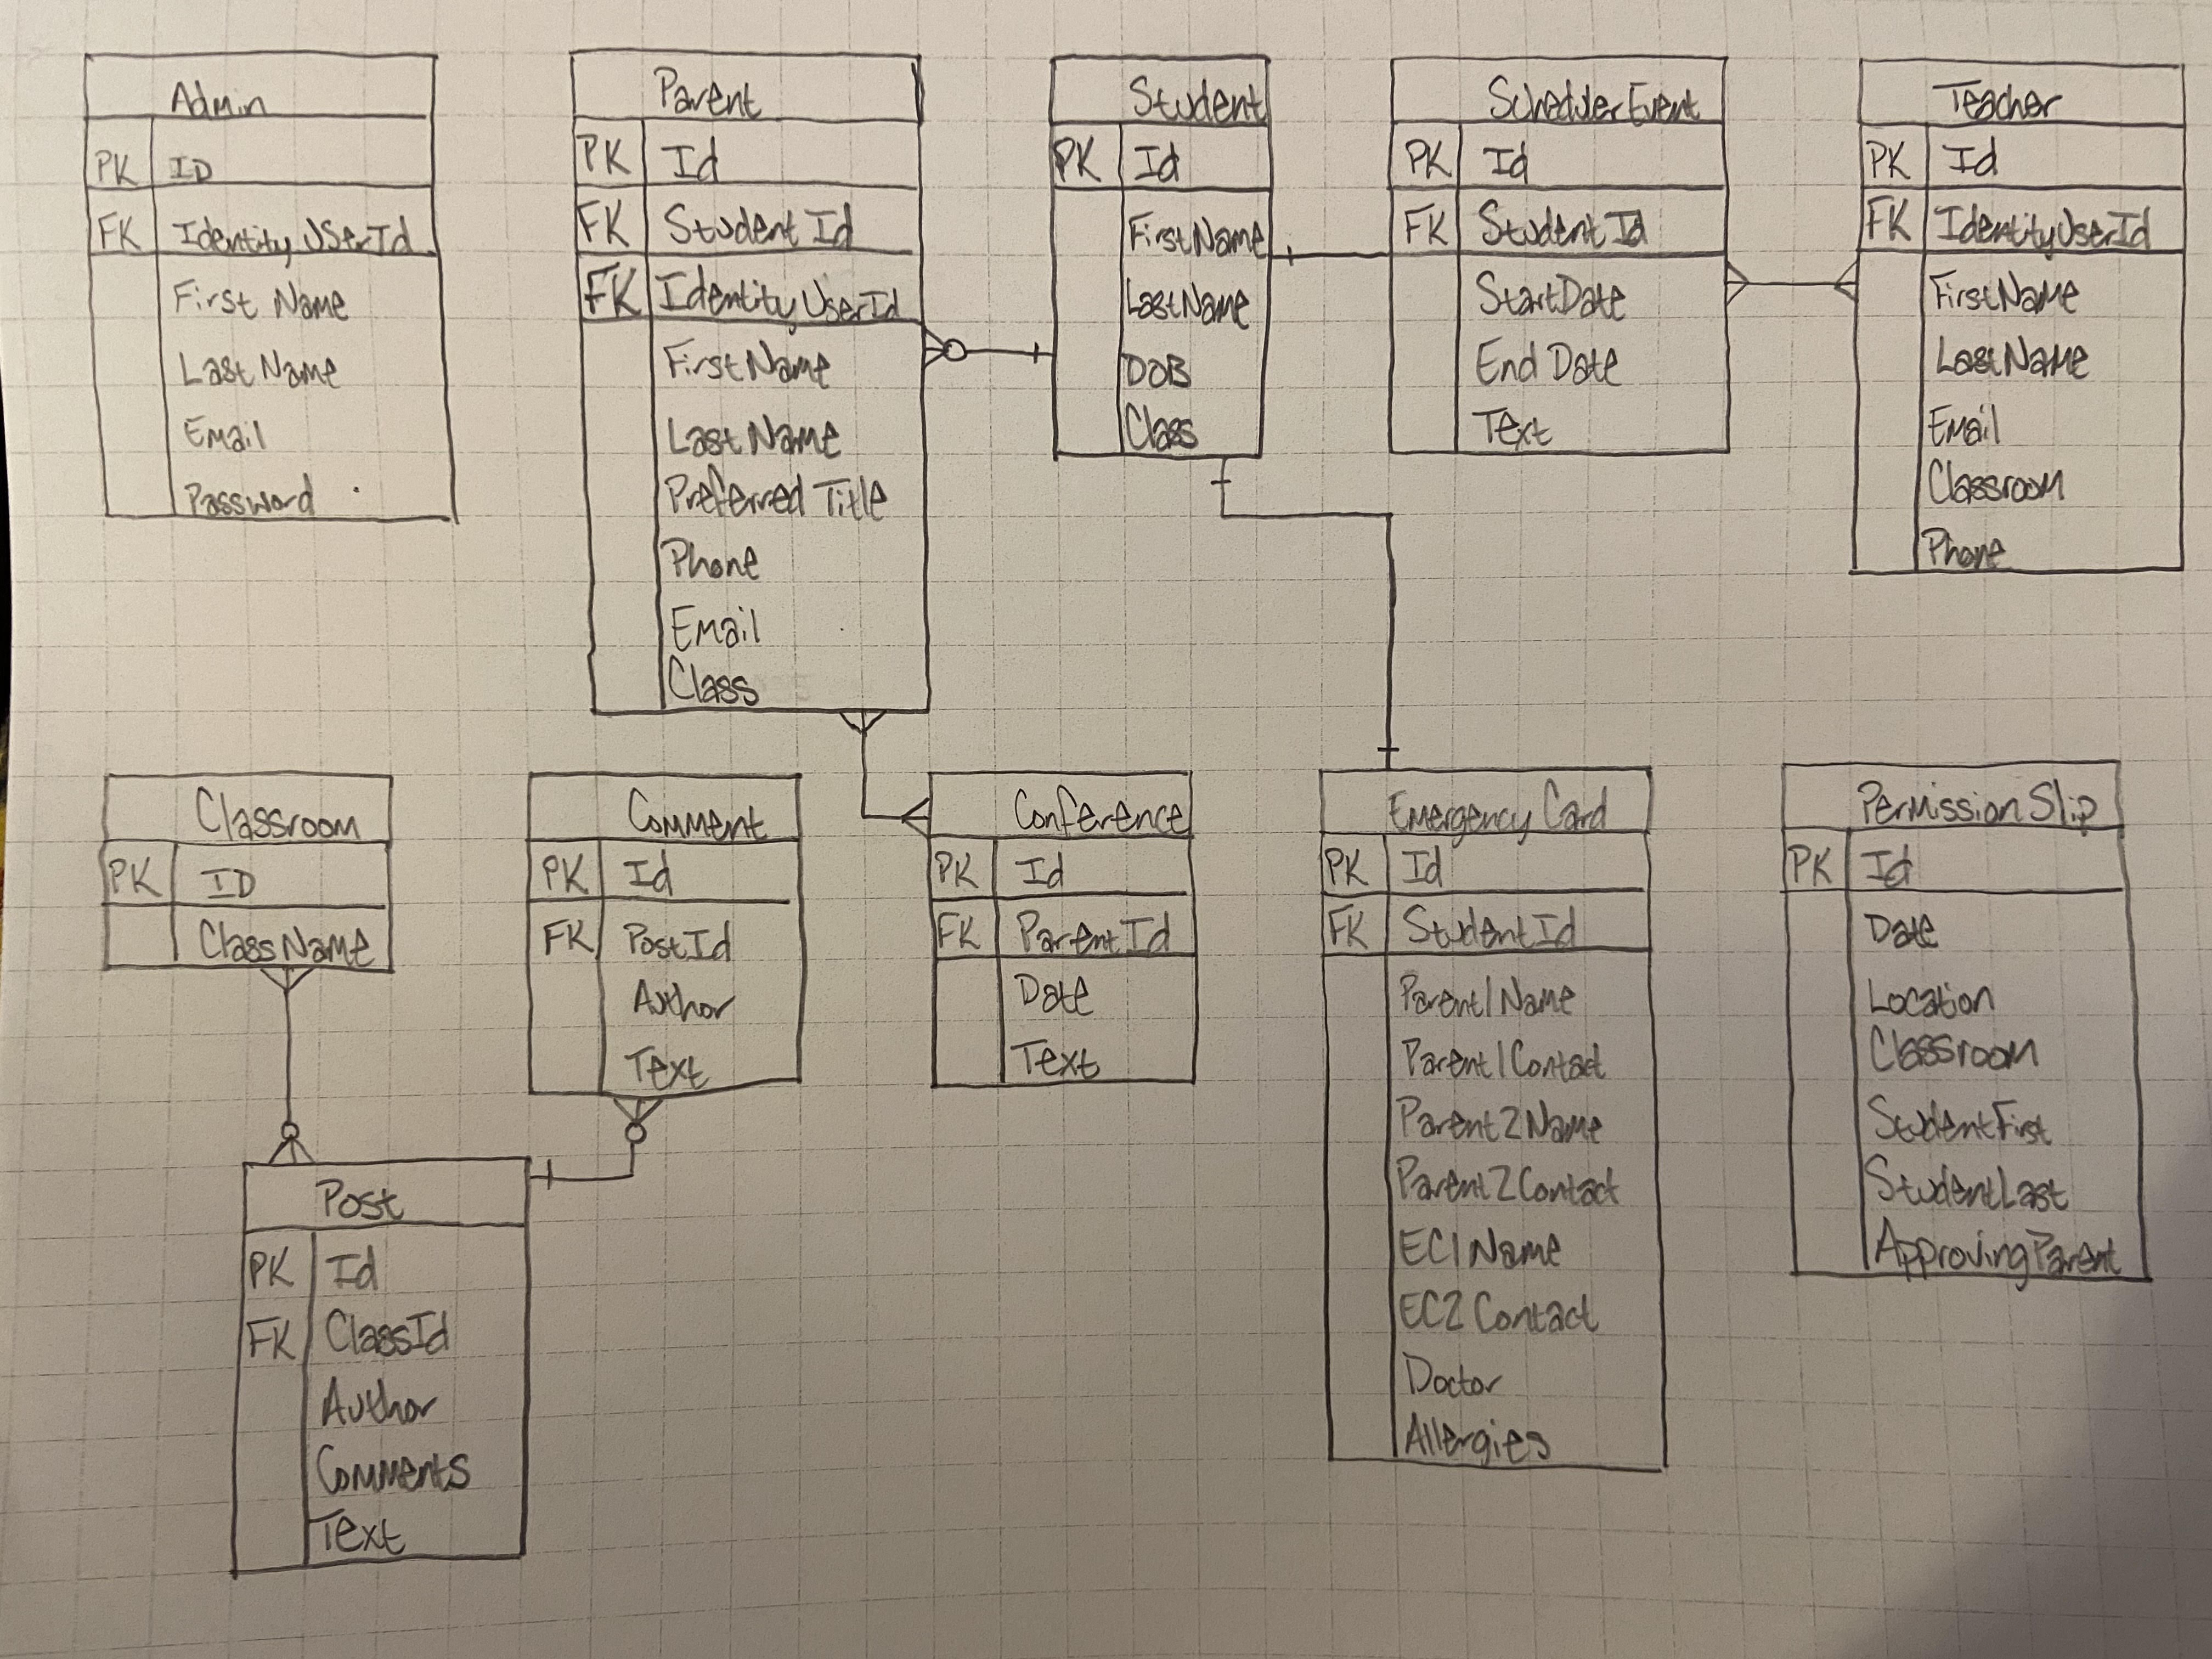 Admin
PK ID
FK IdentityUserId
First Name
Last Name
Email
Password
Parent
PK Id
FK StudentId
FK IdentityUserId
FirstName
LastName
Preferred Title
Phone
Email
Class
Student
PK Id
FirstName
LastName
DOB
Class
SchedulerEvent
PK Id
FK StudentId
StartDate
End Date
Text
Teacher
PK Id
FK IdentityUserId
FirstName
LastName
Email
Classroom
Phone
Classroom
PK ID
ClassName
Comment
PK Id
FK PostId
Author
Text
Conference
PK Id
FK ParentId
Date
Text
Emergency Card
PK Id
FK StudentId
Parent1Name
Parent1Contact
Parent2Name
Parent2Contact
EC1Name
EC2Contact
Doctor
Allergies
PermissionSlip
PK Id
Date
Location
Classroom
StudentFirst
StudentLast
ApprovingParent
Post
PK Id
FK ClassId
Author
Comments
Text